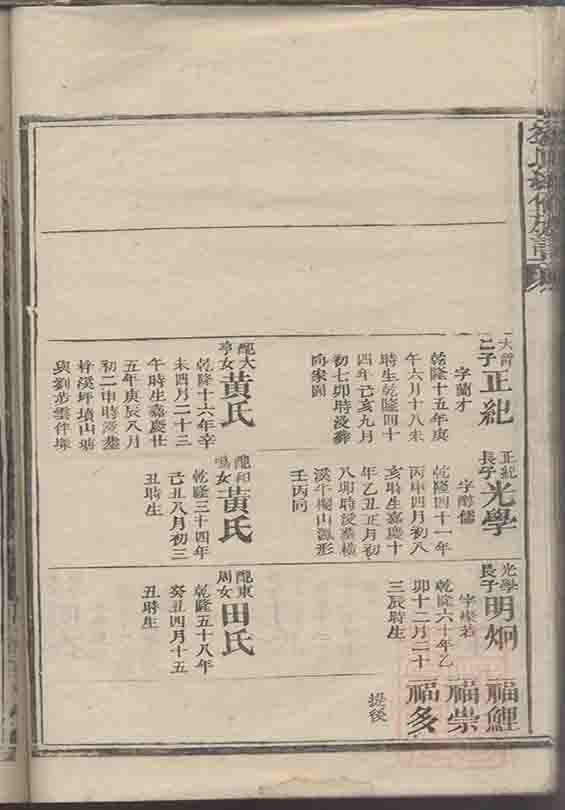 大爵
二子
正紀
字蘭才
乾隆十五年庚
午六月十八未
時生乾隆四十
四年己亥九月
初七卯時浚葬
向家園
配大
亨女
黃氏
乾隆十六年辛
未四月二十三
午時生嘉慶廿
五年庚辰八月
初二申時浚葬
梓溪坪墳山塘
與劉
正紀
長子
光學
字醇儒
乾隆四十一年
丙申四月初八
亥時生嘉慶十
年乙丑正月初
八卯時浚葬橫
溪牛欄山虎形
壬丙向
配和
鳴女
黃氏
乾隆三十四年
己丑八月初三
丑時生
光學
長子
明炯
乾隆六十年乙
卯十二月二十
三辰時生
配東
周女
田氏
乾隆五十八年
癸丑四月十五
丑時生
福鯉
福崇
福多
提後